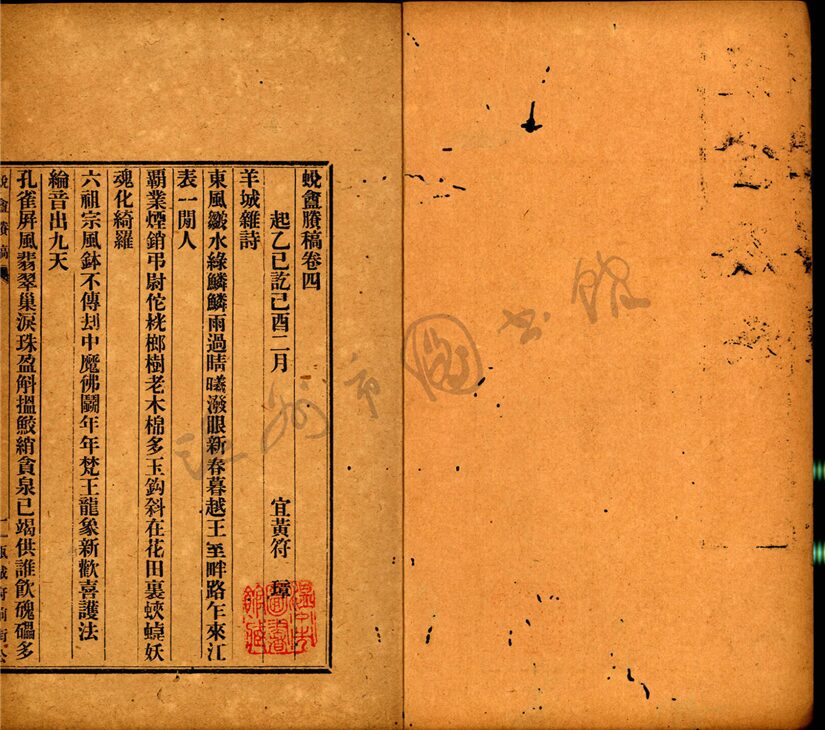 蛻盦賸稿卷四
起乙巳訖己酉二月
宜黃符璋
羊城雜詩
東風皺水綠鱗鱗雨過晴曦潑眼新春暮越王臺畔路乍來江
表一閒人
霸業煙銷弔尉佗桄榔樹老木棉多玉鈎斜在花田裏蛺蟯妖
魂化綺羅
六祖宗風鉢不傳刦中魔佛鬭年年梵王龍象新歡喜護法
綸音出九天
孔雀屏風翡翠巢淚珠盈斛搵鮫綃貪泉已竭供誰飲磈礧多
蛻盦賸稿